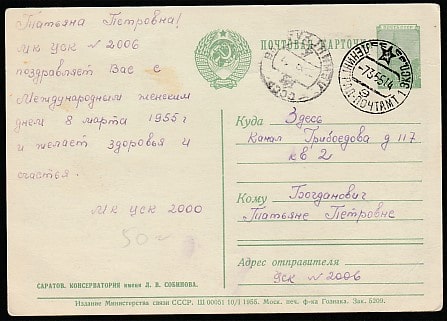 Татьяна Петровна!
МК УСК № 2006
поздравляет Вас с
Международным женским
днем 8 марта 1955 г
и желает здоровья и
счастья.
МК УСК 2000
50
САРАТОВ. КОНСЕРВАТОРИЯ имени Л. В. СОБИНОВА.
ПОЧТОВАЯ КАРТОЧКА
СССР
Куда Здесь
Канал Грибоедова д 117
кв 2
Кому Богданович
Татьяне Петровне
Адрес отправителя
УСК № 2006
Издание Министерства связи СССР. Ш 00051 10/I 1955. Моск. печ. ф-ка Гознака. Зак. 5209.